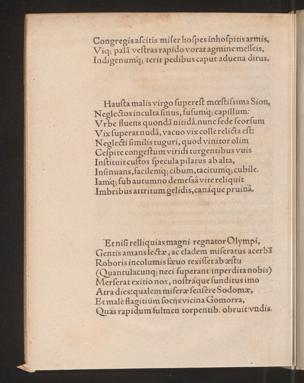 Congregis ascitis miser hospes inhospitis armis,
Viq; palã vestras rapido vorat agmine messeis,
Indigenumq; terit pedibus caput aduena dirus.
Hausta malis virgo superest mœstissima Sion,
Neglectos inculta sinus, fusumq; capillum:
Vrbe fluens quondã nitidã, nunc sede seorsum
Vix superat nudã, vacuo vix colle relicta est:
Neglecti similis tuguri, quod vinitor olim
Cespite congestum viridi turgentibus vuis
Instituit custos specula pilatus ab alta,
Insinuans, facilemq; cibum, tacitumq; cubile.
Iamq; sub autumno demessa vite reliquit
Imbribus attritum gelidis, canáque pruinã.
Et nisi relliquias magni regnator Olympi,
Gentis amans lectæ, ac cladem miseratus acerbã
Roboris incolumis sæuo texisset ab æstu
(Quantulacunq; neci superant inperdita nobis)
Merserat exitio nos, nostráque funditus imo
Atra dies: qualem miseræ sensêre Sodomæ,
Et malè flagitiũm socijs vicina Gomorra,
Quas rapidum fulmen torpentib. obruit vndis.